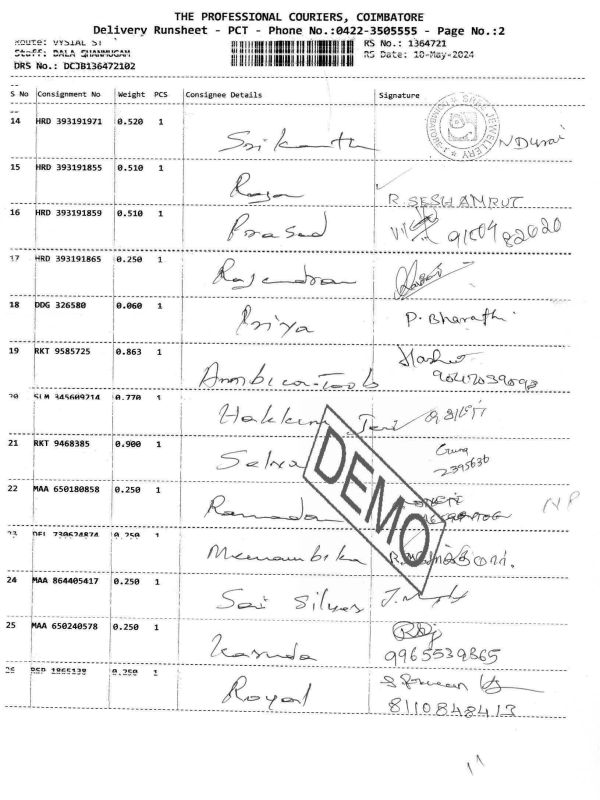 THE PROFESSIONAL COURIERS, COIMBATORE
Delivery Runsheet - PCT - Phone No.:0422-3505555 - Page No.:2
Route: VYSIAL ST
RS No.: 1364721
Staff: BALA SHANMUGAM
RS Date: 10-May-2024
DRS No.: DCJB136472102
S No Consignment No Weight PCS Consignee Details Signature
14 HRD 393191971 0.520 1 Srikanth N Durai
15 HRD 393191855 0.510 1 Raja R. SESHAMRUT
16 HRD 393191859 0.510 1 Prasad
17 HRD 393191865 0.250 1 Rajendran
18 DDG 326580 0.060 1 Priya P. Bharathi
19 RKT 9585725 0.863 1 Ambica Tools
20 SLM 345609214 0.770 1 Hakkim
21 RKT 9468385 0.900 1 Selva 2395636
22 MAA 650180858 0.250 1 NP
23 DEL 730624874 0.250 1 Meenambika
24 MAA 864405417 0.250 1 Sai Silver
25 MAA 650240578 0.250 1 9965539865
26 BSP 1865138 0.250 1 Royal 8110848413
DEMO
11